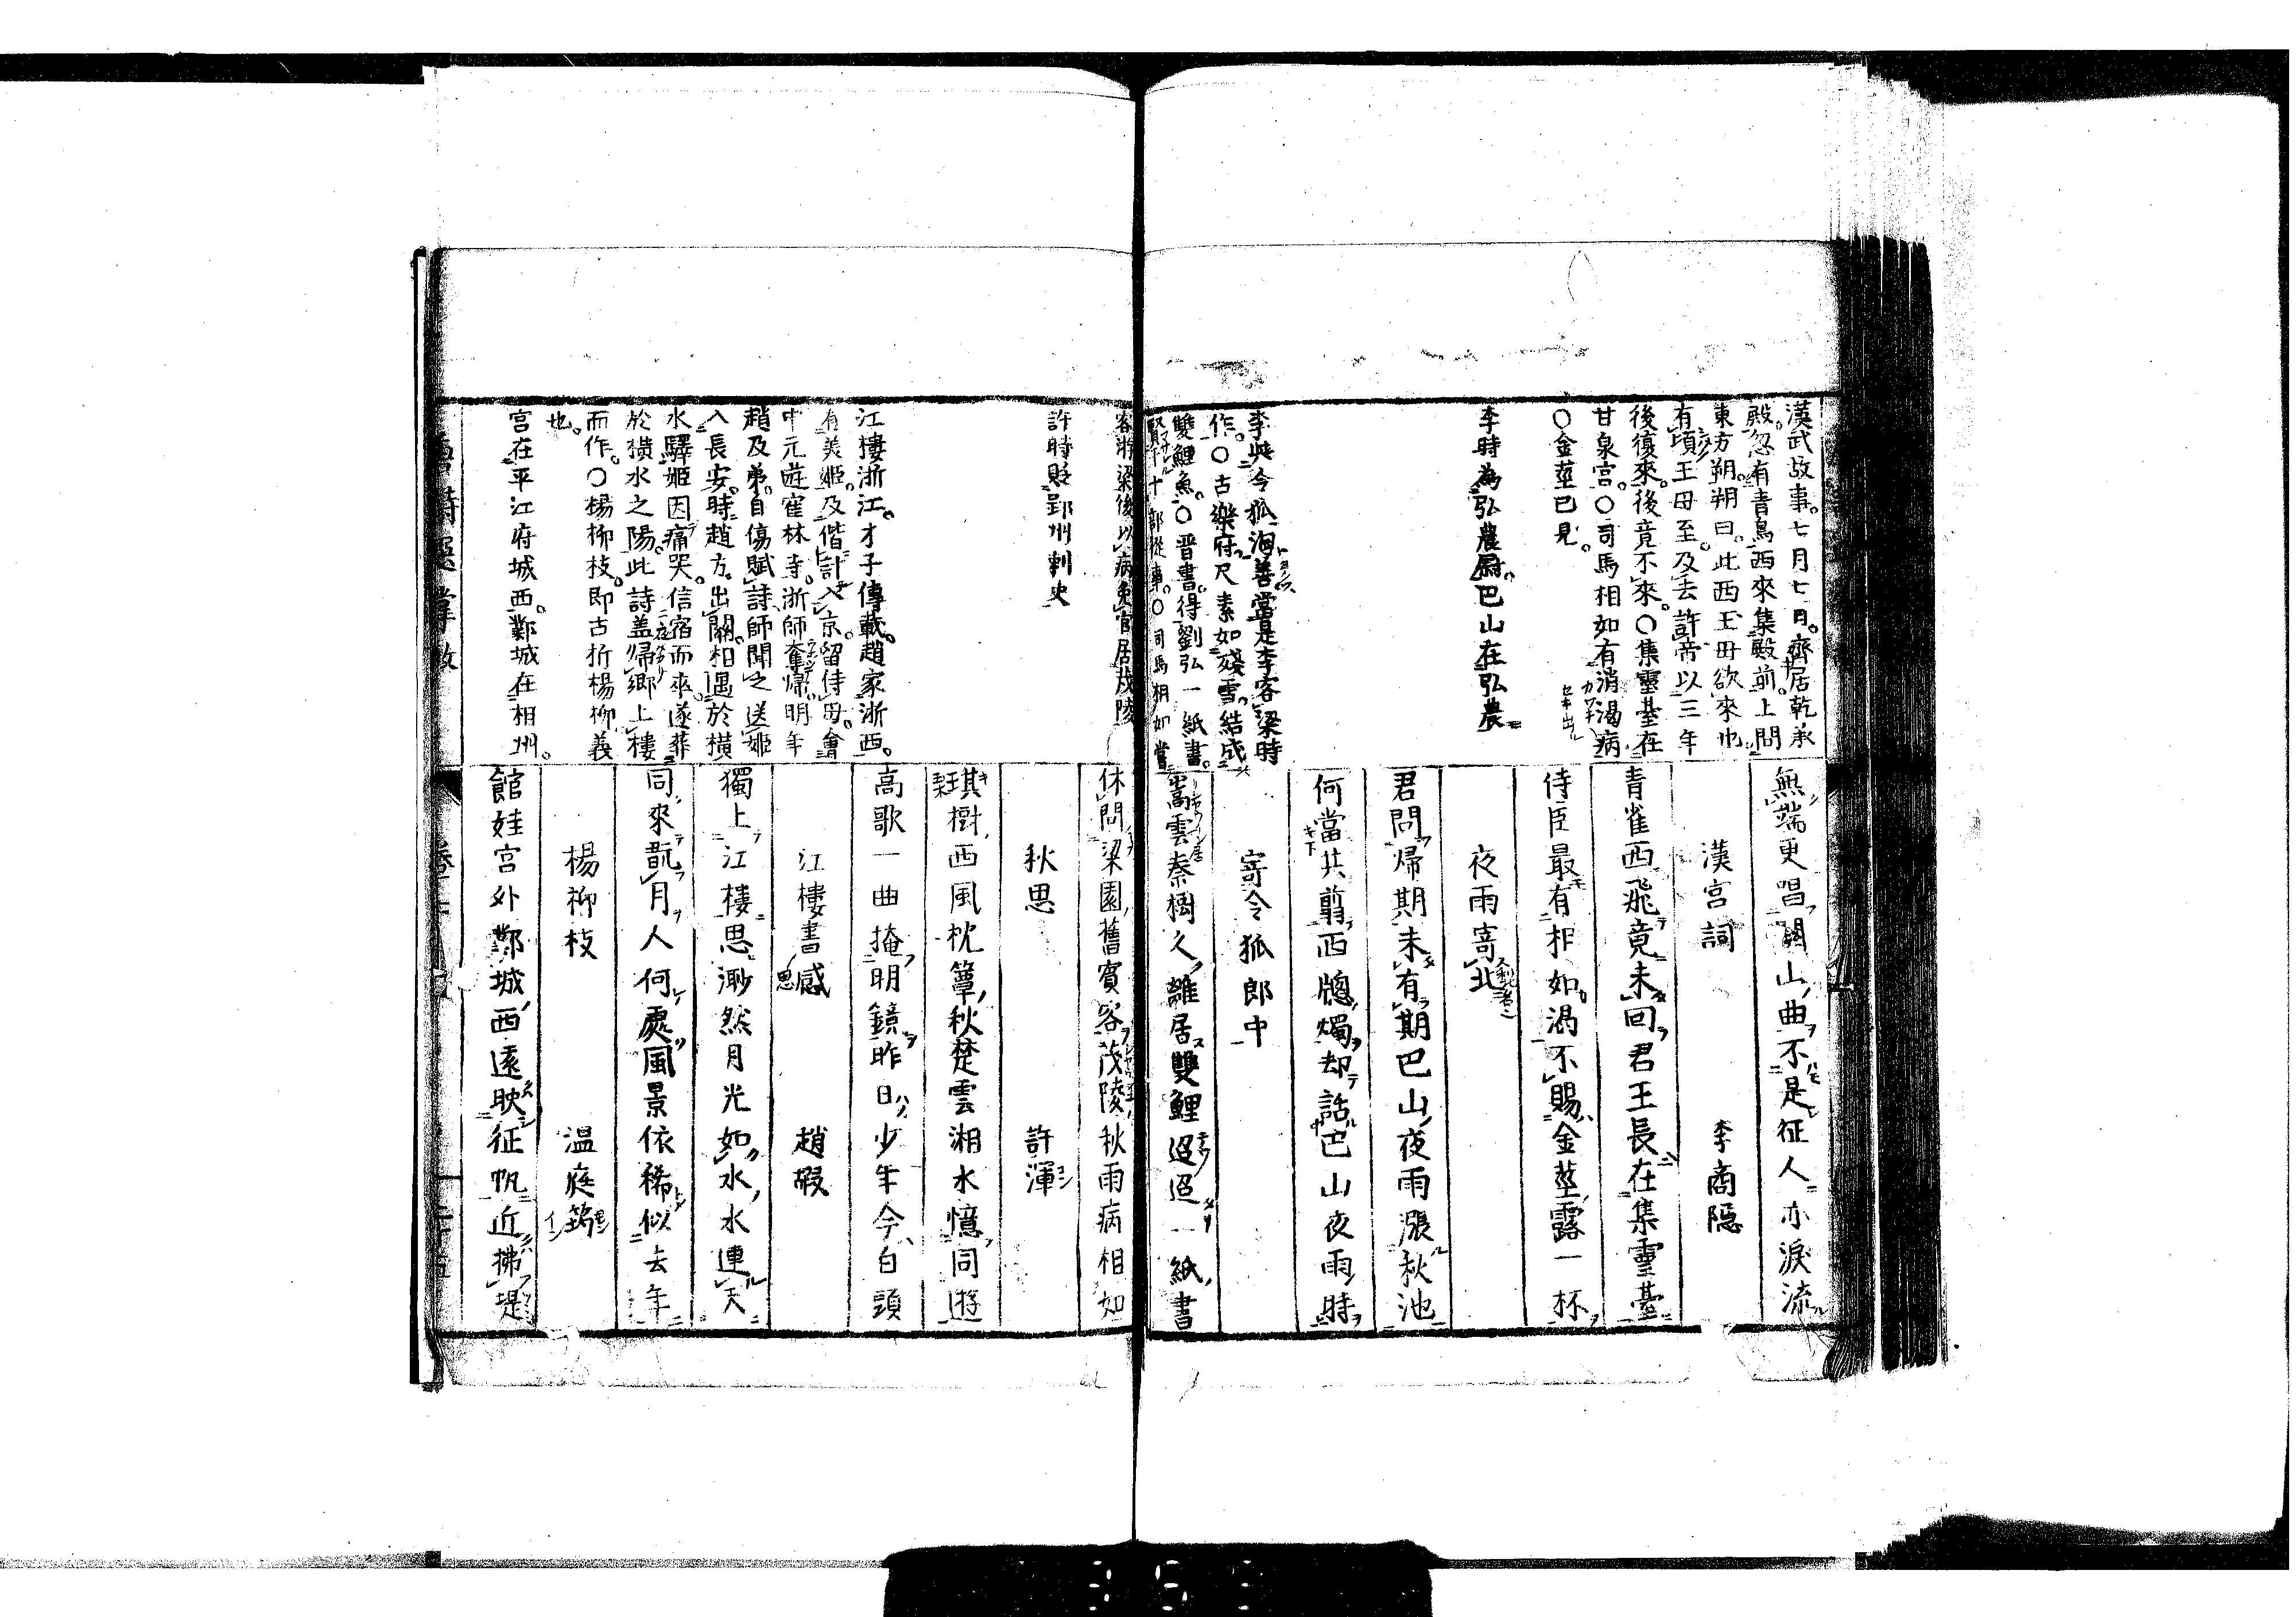 漢武故事。七月七日。齊居乾承
殿。忽有青鳥西來集殿前。上問
東方朔。朔曰。此西王母欲來也
有頃王母至。及去許帝以三年
後復來。後竟不來。○集靈臺在
甘泉宮。○司馬相如有消渴病
○金莖已見。
李時為弘農尉。巴山在弘農
李與令狐洵善當是李客梁時
作。○古樂府。尺素如殘雪。結成
雙鯉魚。○晋書。得劉弘一紙書。
賢於十部從事。○司馬相如嘗
無端更唱關山曲不是征人亦淚流
漢宮詞 李商隱
青雀西飛竟未回君王長在集靈臺
侍臣最有相如渴不賜金莖露一杯
夜雨寄北
君問歸期未有期巴山夜雨漲秋池
何當共翦西窻燭却話巴山夜雨時
寄令狐郎中
嵩雲秦樹久離居雙鯉迢迢一紙書
客游梁後以病免官居茂陵
許時貶郢州刺史
江樓浙江。才子傳載。趙家浙西。
有美姬。及偕計入京。留侍母。會
中元遊窄林寺。浙師奪歸。明年
趙及弟。自傷賦詩師聞之送姬
入長安。時趙方出關。相遇於橫
水驛姬因痛哭。信宿而卒。遂葬
於橫水之陽。此詩盖歸鄉上樓
而作。○楊柳枝。即古折楊柳義
也。
宮在平江府城西。鄴城在相州。
休問梁園舊賓客茂陵秋雨病相如
秋思 許渾
琪樹西風枕簟秋楚雲湘水憶同遊
高歌一曲掩明鏡昨日少年今白頭
江樓書感 趙嘏
獨上江樓思渺然月光如水水連天
同來翫月人何處風景依稀似去年
楊柳枝 温庭筠
館娃宮外鄴城西遠映征帆近拂堤